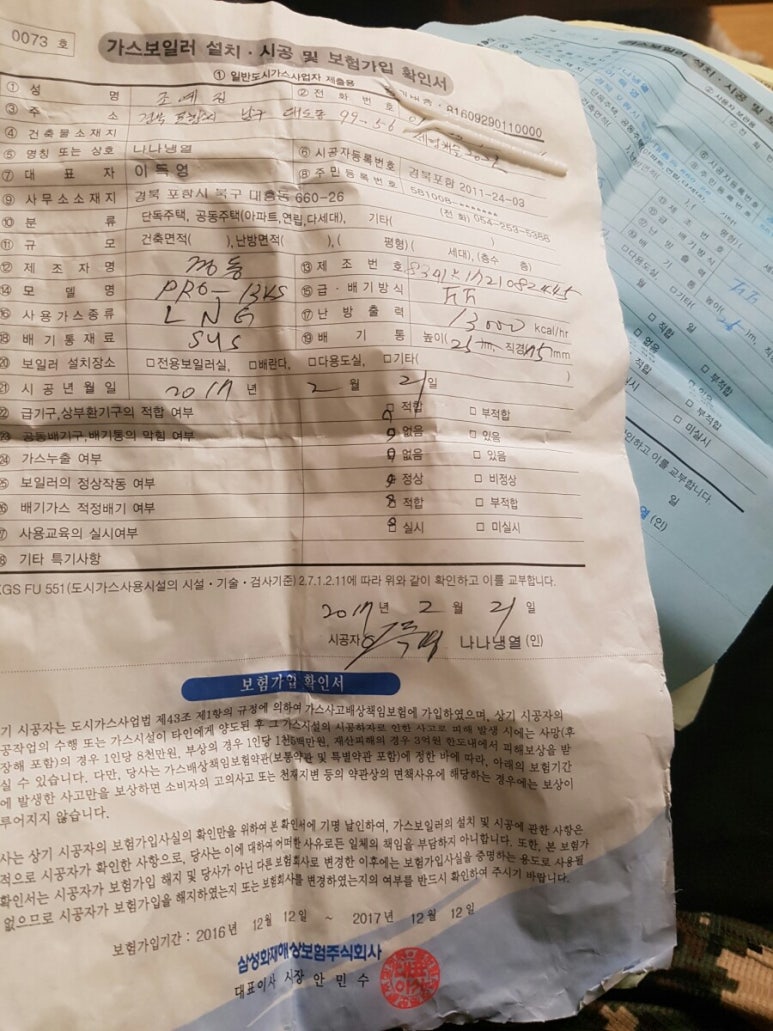 0073 호
가스보일러 설치·시공 및 보험가입 확인서
① 일반도시가스사업자 제출용
R1609290110000
① 성 명 조예림 ② 전화번호
③ 주 소 경북 포항시 남구 대도동 99-56
④ 건축물소재지
⑤ 명칭 또는 상호 나나냉열 ⑥ 시공자등록번호 경북포항 2011-24-03
⑦ 대 표 자 이득영 ⑧ 주민등록번호 581008-*******
⑨ 사무소소재지 경북 포항시 북구 대흥동 660-26 (전화) 054-253-5388
⑩ 분 류 단독주택, 공동주택(아파트,연립,다세대), 기타( )
⑪ 규 모 건축면적( ),난방면적( ),( 평형)( 세대), (층수 층)
⑫ 제 조 자 명 경동 ⑬ 제 조 번 호
⑭ 모 델 명 PRO-13KS ⑮ 급·배기방식 FF
⑯ 사용가스종류 LNG ⑰ 난 방 출 력 13000 kcal/hr
⑱ 배기통재료 SUS ⑲ 배 기 통 높이( m, 직경 75mm
⑳ 보일러 설치장소 □전용보일러실, □배란다, □다용도실, □기타( )
㉑ 시공년월일 2017 년 2 월 21 일
㉒ 급기구,상부환기구의 적합 여부 □ 적합 □ 부적합
㉓ 공동배기구,배기통의 막힘 여부 □ 없음 □ 있음
㉔ 가스누출 여부 □ 없음 □ 있음
㉕ 보일러의 정상작동 여부 □ 정상 □ 비정상
㉖ 배기가스 적정배기 여부 □ 적합 □ 부적합
㉗ 사용교육의 실시여부 □ 실시 □ 미실시
㉘ 기타 특기사항
KGS FU 551(도시가스사용시설의 시설·기술·검사기준) 2.7.1.2.11에 따라 위와 같이 확인하고 이를 교부합니다.
2017 년 2 월 21 일
시공자 나나냉열 (인)
보험가입 확인서
기 시공자는 도시가스사업법 제43조 제1항의 규정에 의하여 가스사고배상책임보험에 가입하였으며, 상기 시공자의
공작업의 수행 또는 가스시설이 타인에게 양도된 후 그 가스시설의 시공하자로 인한 사고로 피해 발생 시에는 사망(후
장해 포함)의 경우 1인당 8천만원, 부상의 경우 1인당 1천5백만원, 재산피해의 경우 3억원 한도내에서 피해보상을 받
실 수 있습니다. 다만, 당사는 가스배상책임보험약관(보통약관 및 특별약관 포함)에 정한 바에 따라, 아래의 보험기간
에 발생한 사고만을 보상하며 소비자의 고의사고 또는 천재지변 등의 약관상의 면책사유에 해당하는 경우에는 보상이
루어지지 않습니다.
사는 상기 시공자의 보험가입사실의 확인만을 위하여 본 확인서에 기명 날인하여, 가스보일러의 설치 및 시공에 관한 사항은
적으로 시공자가 확인한 사항으로, 당사는 이에 대하여 어떠한 사유로든 일체의 책임을 부담하지 아니합니다. 또한, 본 보험가
확인서는 시공자가 보험가입 해지 및 당사가 아닌 다른 보험회사로 변경한 이후에는 보험가입사실을 증명하는 용도로 사용될
없으므로 시공자가 보험가입을 해지하였는지 또는 보험회사를 변경하였는지의 여부를 반드시 확인하여 주시기 바랍니다.
보험가입기간 : 2016년 12월 12일 ~ 2017년 12월 12일
삼성화재해상보험주식회사
대표이사 사장 안민수
가스보일러 설치·시공 및
나나냉열
□ 적합 □ 부적합
□ 없음
□ 부적합
□ 미실시
인하고 이를 교부합니다.
일
(인)